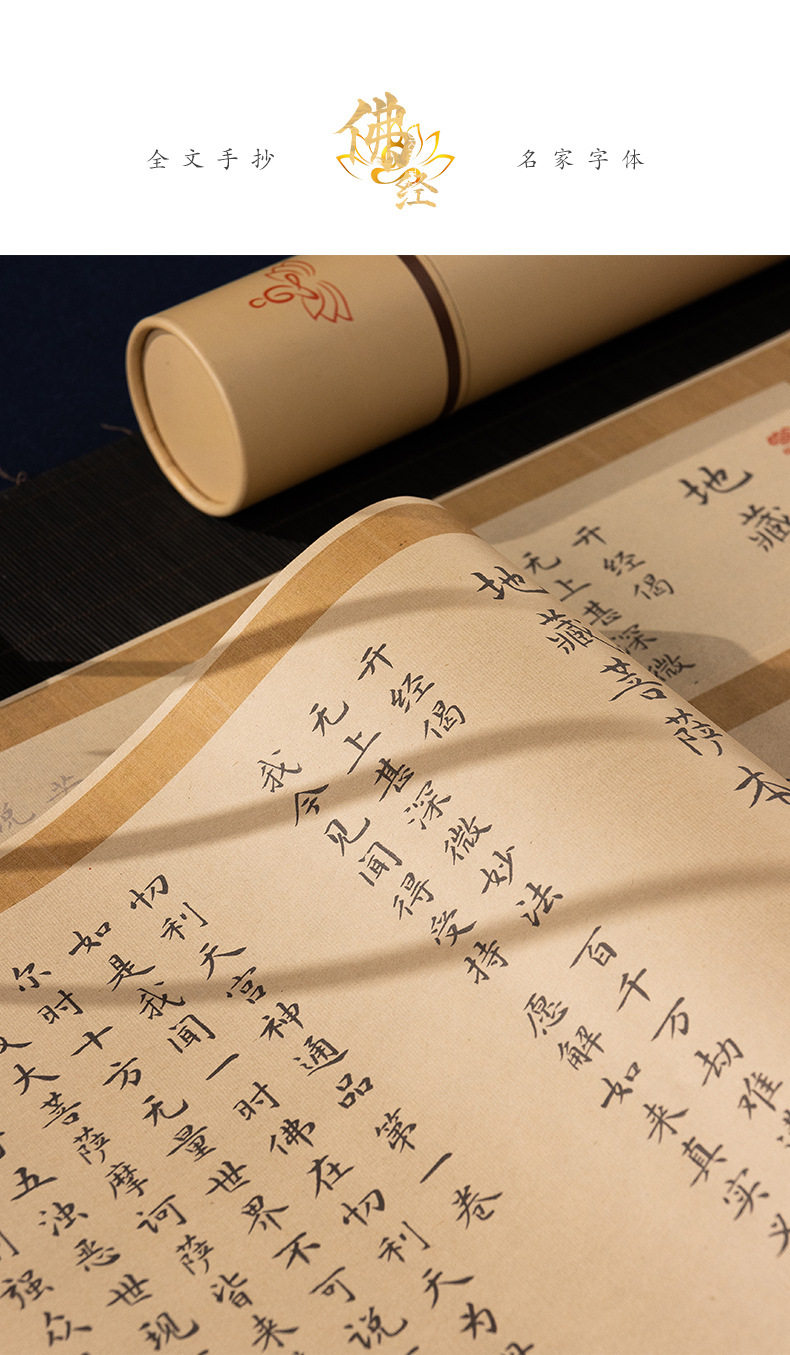 全文手抄
佛经
名家字体
地藏
开经偈
无上甚深微
地藏菩萨本
开经偈
无上甚深微妙法 百千万劫难
我今见闻得受持 愿解如来真实义
忉利天宫神通品第一卷
如是我闻一时佛在忉利天为
尔时十方无量世界不可说
大菩萨摩诃萨皆来
五浊恶世现
强众